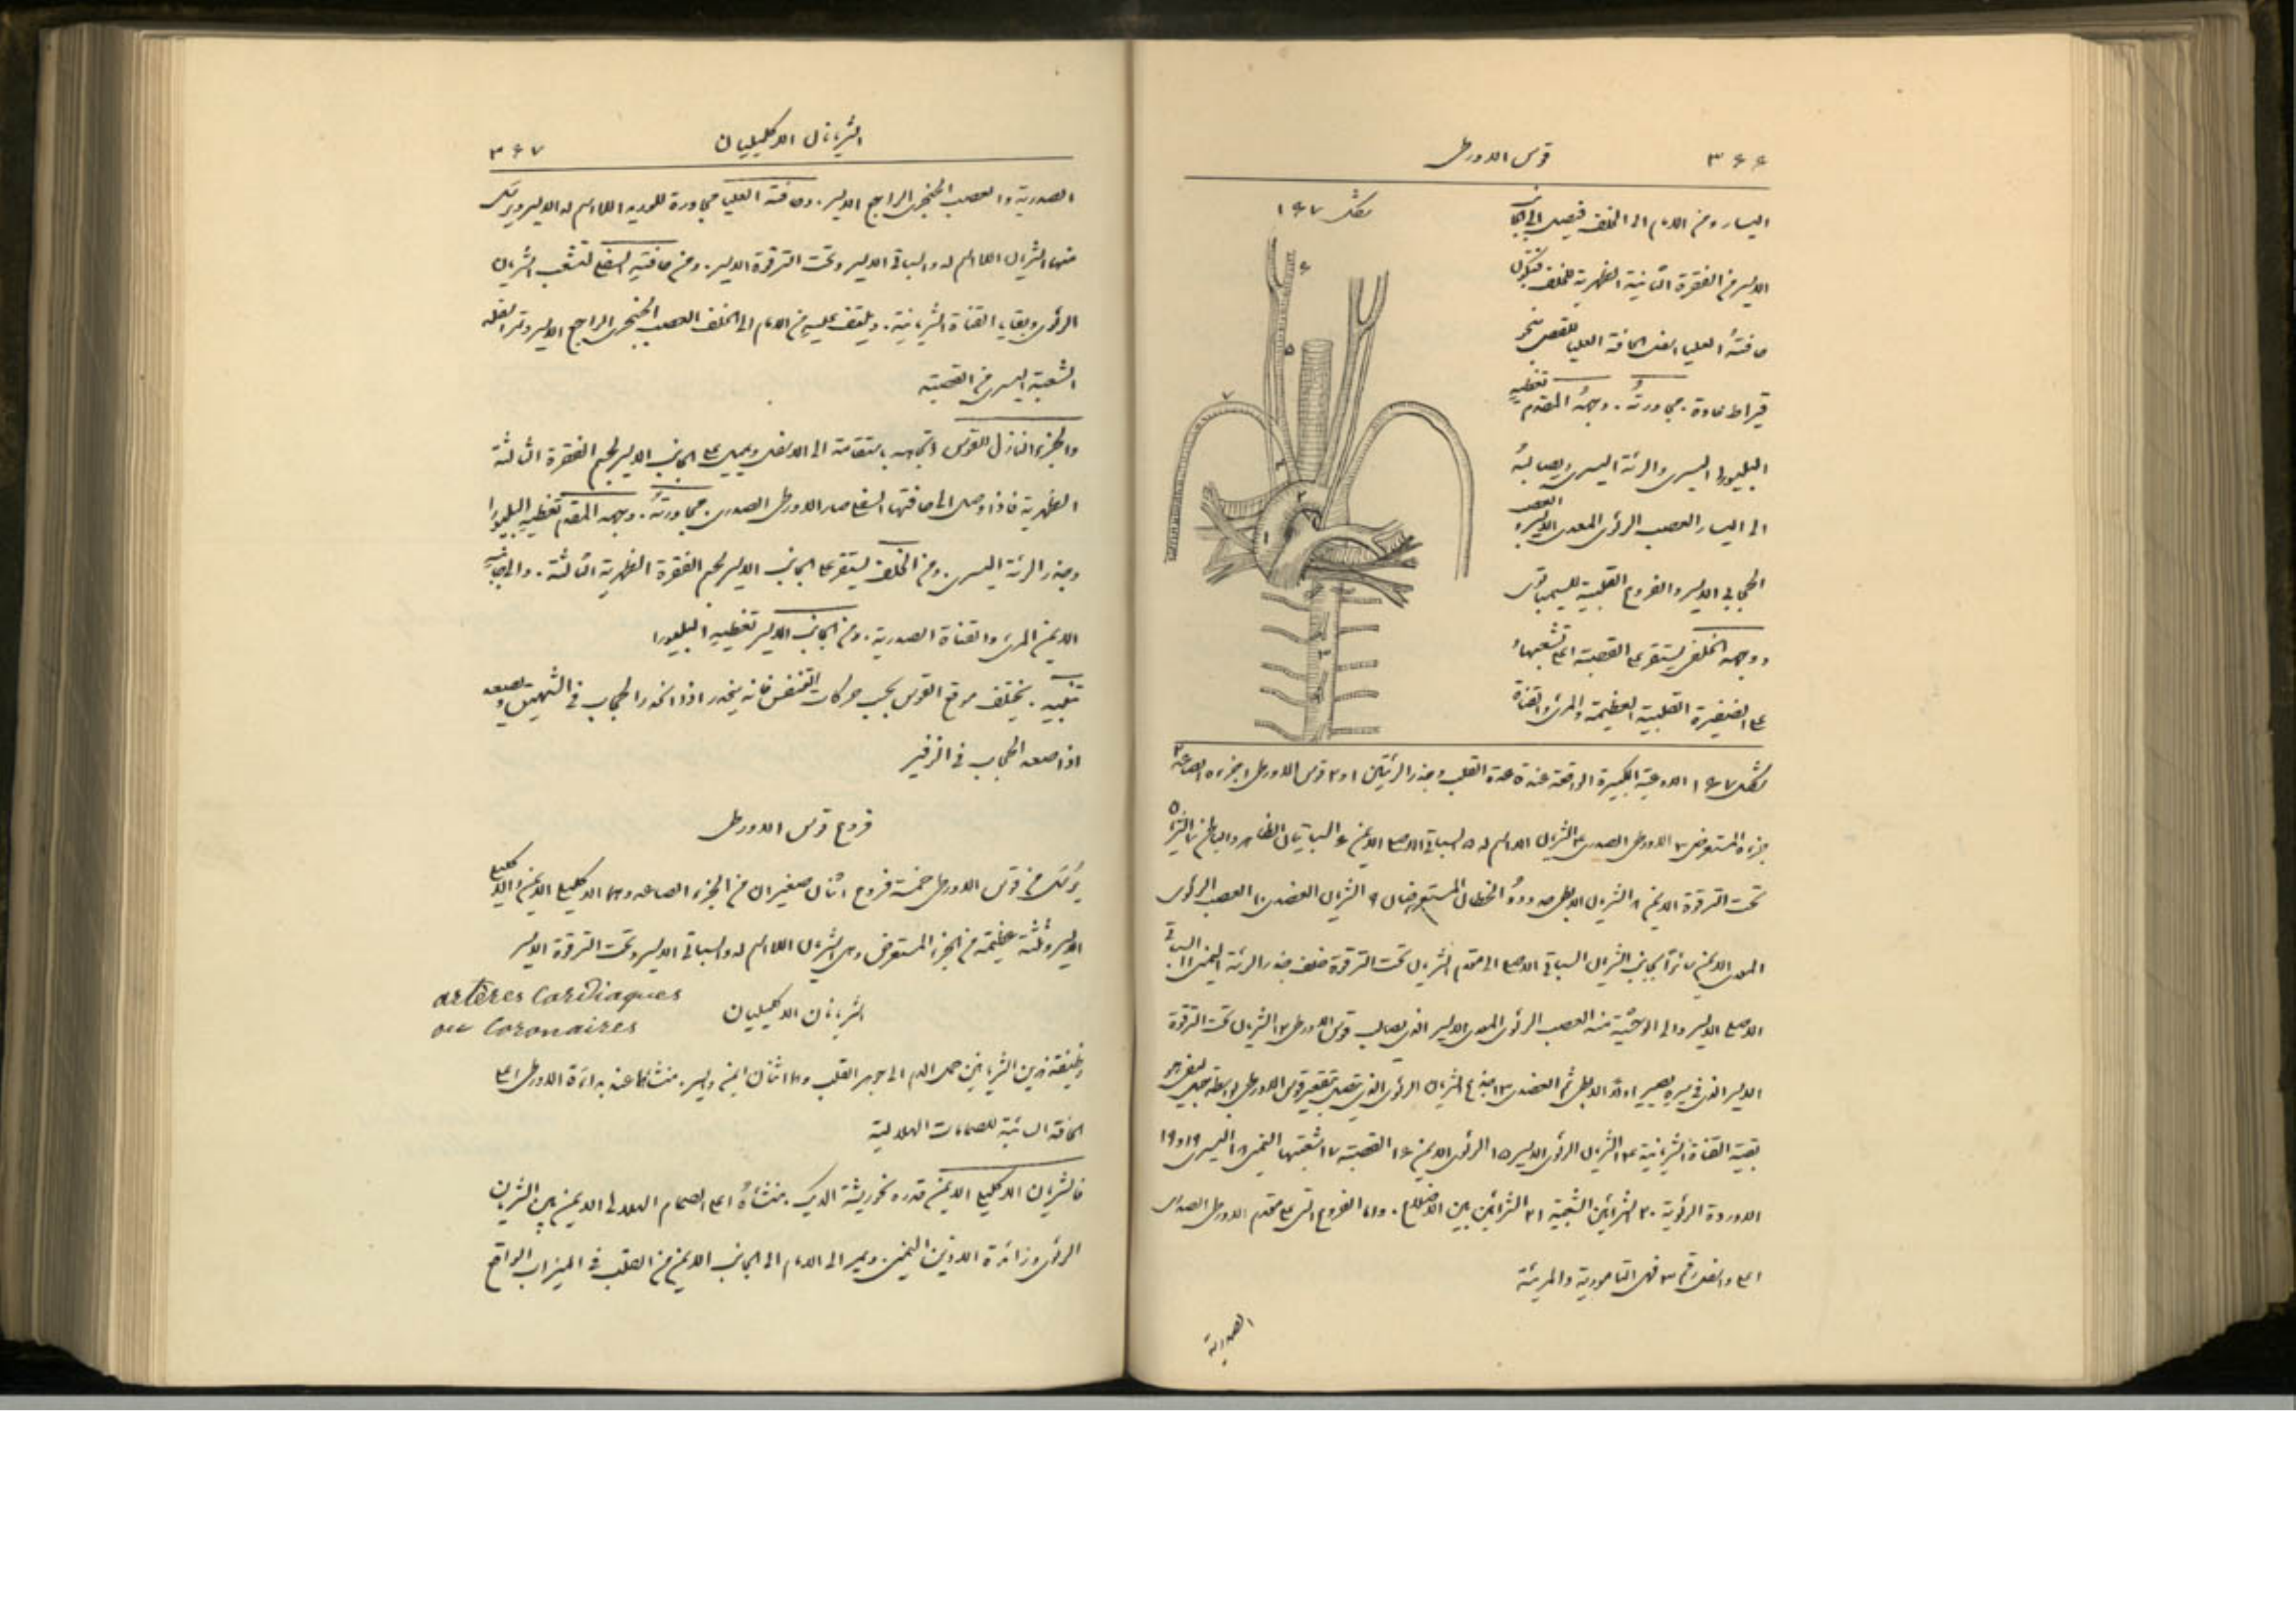 ٣٦٦ قوس الاورطى
شكل ١٦٧
اليسار ومن الامام الى الخلف فيصل الى الجانب
الايسر من الفقرة الثانية الظهرية للخلف فتكون
حافته العليا اسفل الحافة العليا للقص بنحو
قيراط عادة. مجاورته. وجهه المقدم تغطيه
البليورا اليسرى والرئة اليسرى ويصالبه
الى اليسار العصب الرئوى المعدى الايسر والعصب
الحجابى الايسر والفروع القلبية للسيمباثوى
ووجهه الخلفى يستقر على القصبة اعلى تشعبها و
على الضفيرة القلبية العظيمة والمرئ والقناة
شكل ١٦٧ الاوعية الكبيرة الواقعة عند قاعدة القلب وجذر الرئتين ١ و٢ قوس الاورطى ١ جزءه الصاعد ٢
جزءه المستعرض ٣ الاورطى الصدرى ٤ الشريان اللااسم له ٥ السباتى الاصلى الايمن ٦ السباتيان الظاهر والباطن ٧ الشريان
تحت الترقوة الايمن ٨ الشريان الابطى حدوده الخطان المستعرضان ٩ الشريان العضدى ١٠ العصب الرئوى
المعدى الايمن سائرا بجانب الشريان السباتى الاصلى الى مقدم الشريان تحت الترقوة خلف جذر الرئة اليمنى ١١ السباتى
الاصلى الايسر والى الوحشية منه العصب الرئوى المعدى الايسر الذى يصالب قوس الاورطى ١٢ الشريان تحت الترقوة
الايسر الذى فى سيره يصير اولا الابطى ثم العضدى ١٣ جذع الشريان الرئوى الذى يتصل بتقعير قوس الاورطى بواسطة حبل ليفى هو
بقية القناة الشريانية ١٤ الشريان الرئوى الايسر ١٥ الرئوى الايمن ١٦ القصبة ١٧ شعبتها اليمنى ١٨ اليسرى ١٩ و١٩
الاوردة الرئوية ٢٠ الشرائين الشعبية ٢١ الشرائين بين الاضلاع. واما الفروع التى على مقدم الاورطى الصدرى
اعلى واسفل رقم ٣ فهى التامورية والمريئة
الصدرية
الشريانان الاكليليان ٣٦٧
الصدرية والعصب الحنجرى الراجع الايسر. وحافته العليا مجاورة للوريد اللااسم له الايسر ويرتك
منها الشريان اللااسم له والسباتى الايسر وتحت الترقوة الايسر. ومن حافته السفلى تتشعب الشريان
الرئوى وبقايا القناة الشريانية. ويلتف عليه من الامام الى الخلف العصب الحنجرى الراجع الايسر وتمر اسفله
الشعبة اليسرى من القصبة
والجزء النازل للقوس اتجاهه باستقامة الى الاسفل ويميل على الجانب الايسر لجسم الفقرة الثالثة
الظهرية فاذا وصل الى حافتها السفلى صار الاورطى الصدرى. مجاورته. وجهه المقدم تغطيه البليورا
وجذر الرئة اليسرى. ومن الخلف يستقر على الجانب الايسر لجسم الفقرة الظهرية الثالثة. والى جانبه
الايمن المرئ والقناة الصدرية. ومن الجانب الايسر تغطيه البليورا
تنبيه. يختلف موقع القوس بحسب حركات التنفس فانه ينحدر اذا انحدر الحجاب فى الشهيق ويصعد
اذا صعد الحجاب فى الزفير
فروع قوس الاورطى
يرتك من قوس الاورطى خمسة فروع اثنان صغيران من الجزء الصاعد وهما الاكليلى الايمن والاكليلى
الايسر وثلثة عظيمة من الجزء المستعرض وهى الشريان اللااسم له والسباتى الايسر وتحت الترقوة الايسر
الشريانان الاكليليان
artères Cardiaques
ou Coronaires
وظيفة هذين الشريانين حمل الدم الى جوهر القلب وهما اثنان ايمن وايسر. منشأهما عند بداءة الاورطى اعلى
الحافة السائبة للصمامات الهلالية
فالشريان الاكليلى الايمن قدره نحو ريشة الديك. منشأه اعلى الصمام الهلالى الايمن بين الشريان
الرئوى وزائدة الاذين اليمنى. ويسير الى الامام الى الجانب الايمن من القلب فى الميزاب الواقع